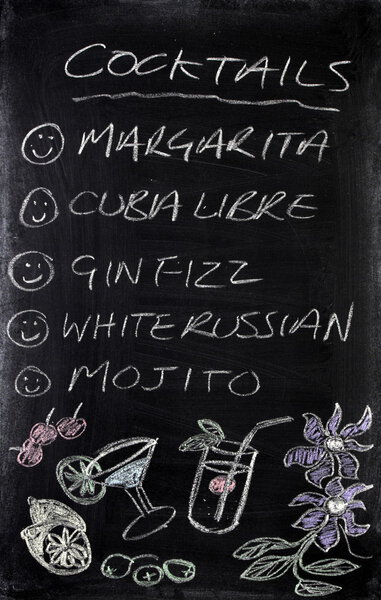 COCKTAILS
MARGARITA
CUBA LIBRE
GIN FIZZ
WHITE RUSSIAN
MOJITO